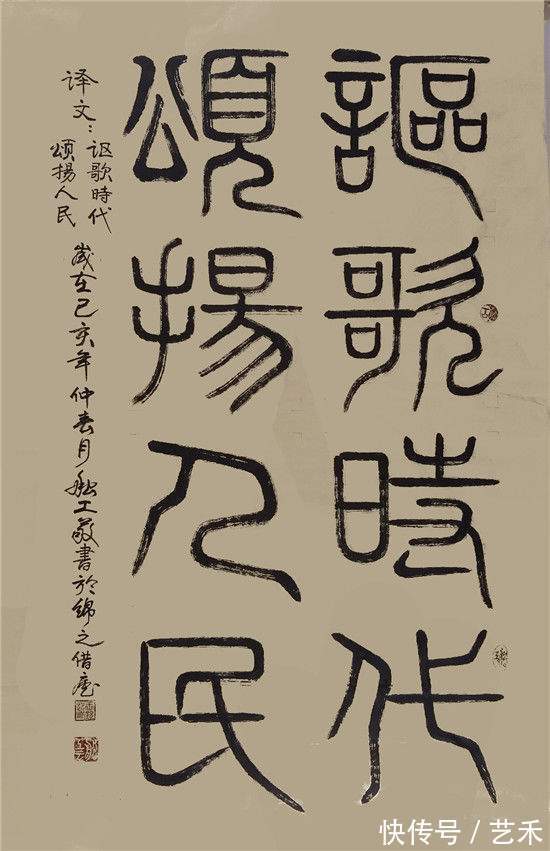 謳歌時代
頌揚人民
译文：讴歌時代
颂揚人民
歲在己亥年仲春月工敬書於綿之借
快传号 / 艺禾